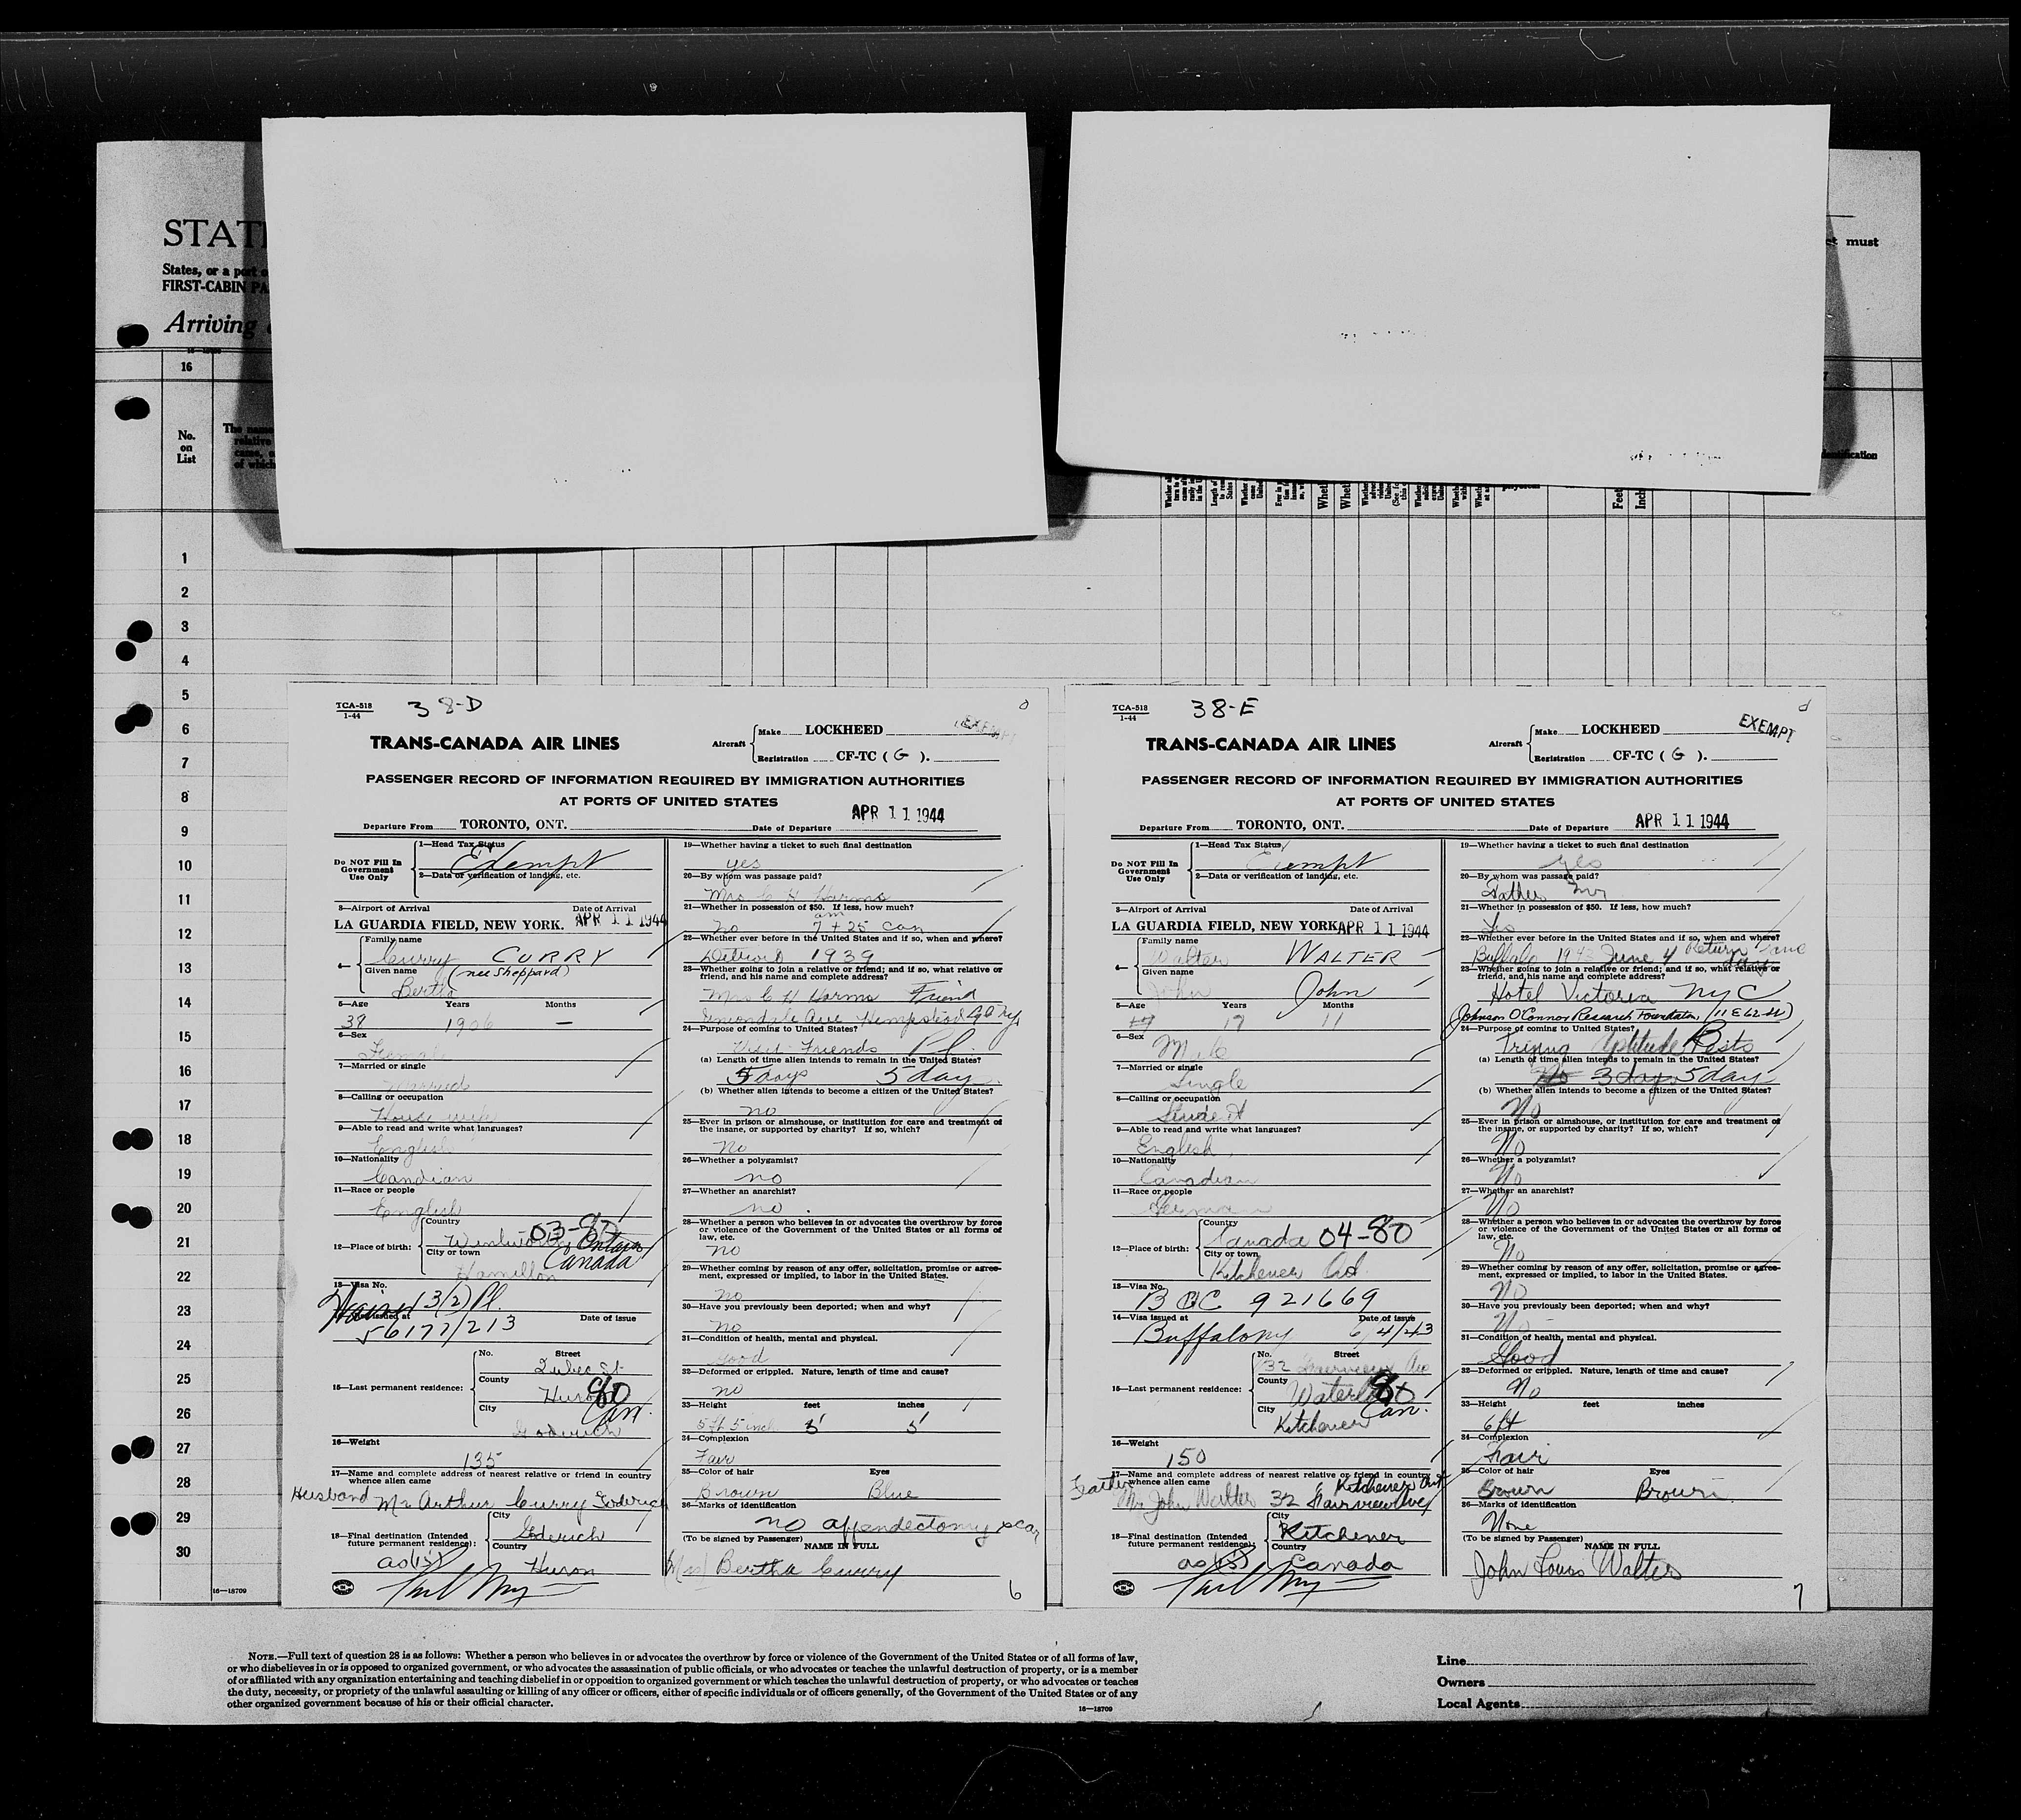 STAT
States, or a port o
FIRST-CABIN PA
Arriving
ct must
16
No.
on
List
The name
relative
came, o
of which
identification
Feet
1
2
3
4
5
6
7
8
9
10
11
12
13
14
15
16
17
18
19
20
21
22
23
24
25
26
27
28
29
30
16—18709
TCA-518
1-44
38-D
EXEMPT
TRANS-CANADA AIR LINES
Aircraft
Make LOCKHEED
Registration CF-TC ( G ).
PASSENGER RECORD OF INFORMATION REQUIRED BY IMMIGRATION AUTHORITIES
AT PORTS OF UNITED STATES
Departure From TORONTO, ONT. Date of Departure APR 11 1944
Do NOT Fill In Government Use Only
1—Head Tax Status
Exempt
2—Data or verification of landing, etc.
3—Airport of Arrival Date of Arrival
LA GUARDIA FIELD, NEW YORK. APR 11 1944
4—
Family name
Curry CURRY
Given name (nee Sheppard)
Bertha
5—Age Years Months
38 1906 —
6—Sex
Female
7—Married or single
Married
8—Calling or occupation
House wife
9—Able to read and write what languages?
English
10—Nationality
Candian
11—Race or people
English
12—Place of birth:
Country 03-80
Wentworth Ontario
City or town Canada
Hamilton
13—Visa No.
(3/2) Pl.
Visa issued at Date of issue
56177/213
15—Last permanent residence:
No. Street
County
Huron 80
City Can.
Goderich
16—Weight
135
17—Name and complete address of nearest relative or friend in country
whence alien came
Husband Mr Arthur Curry Goderich
18—Final destination (Intended
future permanent residence):
City
Goderich
Country
Huron
as (15)
19—Whether having a ticket to such final destination
yes
20—By whom was passage paid?
Mrs C H Harms
21—Whether in possession of $50. If less, how much?
am
no 7 + 25 can
22—Whether ever before in the United States and if so, when and where?
Detroit 1939
23—Whether going to join a relative or friend; and if so, what relative or
friend, and his name and complete address?
Mrs C H Harms Friend
Ave Hempstead
24—Purpose of coming to United States?
Visit Friends Pl.
(a) Length of time alien intends to remain in the United States?
5 days 5 day
(b) Whether alien intends to become a citizen of the United States?
no
25—Ever in prison or almshouse, or institution for care and treatment of
the insane, or supported by charity? If so, which?
No
26—Whether a polygamist?
no
27—Whether an anarchist?
no.
28—Whether a person who believes in or advocates the overthrow by force
or violence of the Government of the United States or all forms of
law, etc.
no
29—Whether coming by reason of any offer, solicitation, promise or agree-
ment, expressed or implied, to labor in the United States.
no
30—Have you previously been deported; when and why?
no
31—Condition of health, mental and physical.
Good
32—Deformed or crippled. Nature, length of time and cause?
no
33—Height feet inches
5 ft 5 inch 5' 5'
34—Complexion
Fair
35—Color of hair Eyes
Brown Blue
36—Marks of identification
no appendectomy scar
(To be signed by Passenger) NAME IN FULL
(Mrs) Bertha Curry
6
TCA-518
1-44
38-E
EXEMPT
TRANS-CANADA AIR LINES
Aircraft
Make LOCKHEED
Registration CF-TC ( G ).
PASSENGER RECORD OF INFORMATION REQUIRED BY IMMIGRATION AUTHORITIES
AT PORTS OF UNITED STATES
Departure From TORONTO, ONT. Date of Departure APR 11 1944
Do NOT Fill In Government Use Only
1—Head Tax Status
Exempt
2—Data or verification of landing, etc.
3—Airport of Arrival Date of Arrival
LA GUARDIA FIELD, NEW YORK APR 11 1944
4—
Family name
Walter WALTER
Given name
John John
5—Age Years Months
17 17 11
6—Sex
Male
7—Married or single
Single
8—Calling or occupation
Student
9—Able to read and write what languages?
English
10—Nationality
Canadian
11—Race or people
German
12—Place of birth:
Country
Canada 04-80
City or town
Kitchener Ont.
13—Visa No.
B CC 921669
14—Visa issued at Date of issue
Buffalo NY 6/4/43
15—Last permanent residence:
No. Street
32 Ave
County
Waterloo 80
City Can.
Kitchener
16—Weight
150
17—Name and complete address of nearest relative or friend in country
whence alien came
Father Kitchener Ont
Mr John Walter 32 Fairview Ave
18—Final destination (Intended
future permanent residence):
City
Kitchener
Country
Canada
as (15)
19—Whether having a ticket to such final destination
yes
20—By whom was passage paid?
Father
21—Whether in possession of $50. If less, how much?
Yes
22—Whether ever before in the United States and if so, when and where?
Buffalo 1943 June 4 Return same day
23—Whether going to join a relative or friend; and if so, what relative or
friend, and his name and complete address?
Hotel Victoria NYC
Johnson O'Connor Research Foundation, (11 E 62 St)
24—Purpose of coming to United States?
Aptitude Tests
(a) Length of time alien intends to remain in the United States?
No 3 days 5 day
(b) Whether alien intends to become a citizen of the United States?
No
25—Ever in prison or almshouse, or institution for care and treatment of
the insane, or supported by charity? If so, which?
No
26—Whether a polygamist?
No
27—Whether an anarchist?
No
28—Whether a person who believes in or advocates the overthrow by force
or violence of the Government of the United States or all forms of
law, etc.
No
29—Whether coming by reason of any offer, solicitation, promise or agree-
ment, expressed or implied, to labor in the United States.
NO
30—Have you previously been deported; when and why?
No
31—Condition of health, mental and physical.
Good
32—Deformed or crippled. Nature, length of time and cause?
No
33—Height feet inches
6 ft
34—Complexion
Fair
35—Color of hair Eyes
Brown Brown
36—Marks of identification
None
(To be signed by Passenger) NAME IN FULL
John Louis Walter
7
NOTE.—Full text of question 28 is as follows: Whether a person who believes in or advocates the overthrow by force or violence of the Government of the United States or of all forms of law,
or who disbelieves in or is opposed to organized government, or who advocates the assassination of public officials, or who advocates or teaches the unlawful destruction of property, or is a member
of or affiliated with any organization entertaining and teaching disbelief in or opposition to organized government or which teaches the unlawful destruction of property, or who advocates or teaches
the duty, necessity, or propriety of the unlawful assaulting or killing of any officer or officers, either of specific individuals or of officers generally, of the Government of the United States or of any
other organized government because of his or their official character.
16—18709
Line
Owners
Local Agents